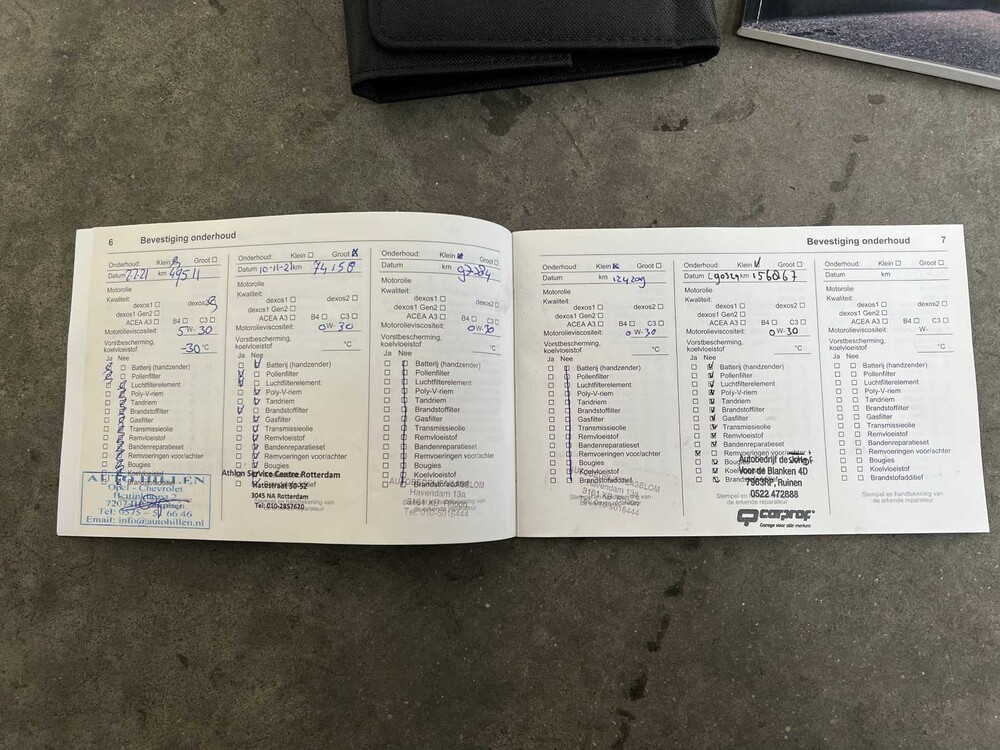 6 Bevestiging onderhoud
Onderhoud: Klein Groot
Datum 2-7-21 km 49511
Motorolie
Kwaliteit:
dexos1 dexos2
dexos1 Gen2
ACEA A3 B4 C3
Motorolieviscositeit: 5W-30
Vorstbescherming,
koelvloeistof -30 °C
Ja Nee
Batterij (handzender)
Pollenfilter
Luchtfilterelement
Poly-V-riem
Tandriem
Brandstoffilter
Gasfilter
Transmissieolie
Remvloeistof
Bandenreparatieset
Remvoeringen voor/achter
Bougies
Koelvloeistof
AUTO HILLEN
Opel - Chevrolet
Email: info@autohillen.nl
Onderhoud: Klein Groot
Datum 10-11-21 km 74158
Motorolie
Kwaliteit:
dexos1 dexos2
dexos1 Gen2
ACEA A3 B4 C3
Motorolieviscositeit: 0W-30
Vorstbescherming,
koelvloeistof °C
Ja Nee
Batterij (handzender)
Pollenfilter
Luchtfilterelement
Poly-V-riem
Tandriem
Brandstoffilter
Gasfilter
Transmissieolie
Remvloeistof
Bandenreparatieset
Remvoeringen voor/achter
Bougies
Athlon Service Centre Rotterdam
3045 NA Rotterdam
Tel: 010-2857620
Onderhoud: Klein Groot
Datum km 97384
Motorolie
Kwaliteit:
dexos1 dexos2
dexos1 Gen2
ACEA A3 B4 C3
Motorolieviscositeit: 0W-30
Vorstbescherming,
koelvloeistof °C
Ja Nee
Batterij (handzender)
Pollenfilter
Luchtfilterelement
Poly-V-riem
Tandriem
Brandstoffilter
Gasfilter
Transmissieolie
Remvloeistof
Bandenreparatieset
Remvoeringen voor/achter
Bougies
Koelvloeistof
Brandstofadditief
Havendam 13a
Tel: 010-5016444
Bevestiging onderhoud 7
Onderhoud: Klein Groot
Datum km 124209
Motorolie
Kwaliteit:
dexos1 dexos2
dexos1 Gen2
ACEA A3 B4 C3
Motorolieviscositeit: 0W-30
Vorstbescherming,
koelvloeistof °C
Ja Nee
Batterij (handzender)
Pollenfilter
Luchtfilterelement
Poly-V-riem
Tandriem
Brandstoffilter
Gasfilter
Transmissieolie
Remvloeistof
Bandenreparatieset
Remvoeringen voor/achter
Bougies
Koelvloeistof
Brandstofadditief
Havendam 13a
Onderhoud: Klein Groot
Datum km 156867
Motorolie
Kwaliteit:
dexos1 dexos2
dexos1 Gen2
ACEA A3 B4 C3
Motorolieviscositeit: 0W-30
Vorstbescherming,
koelvloeistof °C
Ja Nee
Batterij (handzender)
Pollenfilter
Luchtfilterelement
Poly-V-riem
Tandriem
Brandstoffilter
Gasfilter
Transmissieolie
Remvloeistof
Bandenreparatieset
Remvoeringen voor/achter
Autobedrijf de
Voor de Blanken 4D
7963RP, Ruinen
0522 472888
carprof
Garage voor alle merken
Onderhoud: Klein Groot
Datum km
Motorolie
Kwaliteit:
dexos1 dexos2
dexos1 Gen2
ACEA A3 B4 C3
Motorolieviscositeit: W-
Vorstbescherming,
koelvloeistof °C
Ja Nee
Batterij (handzender)
Pollenfilter
Luchtfilterelement
Poly-V-riem
Tandriem
Brandstoffilter
Gasfilter
Transmissieolie
Remvloeistof
Bandenreparatieset
Remvoeringen voor/achter
Bougies
Koelvloeistof
Brandstofadditief
Stempel en handtekening van
de erkende reparateur